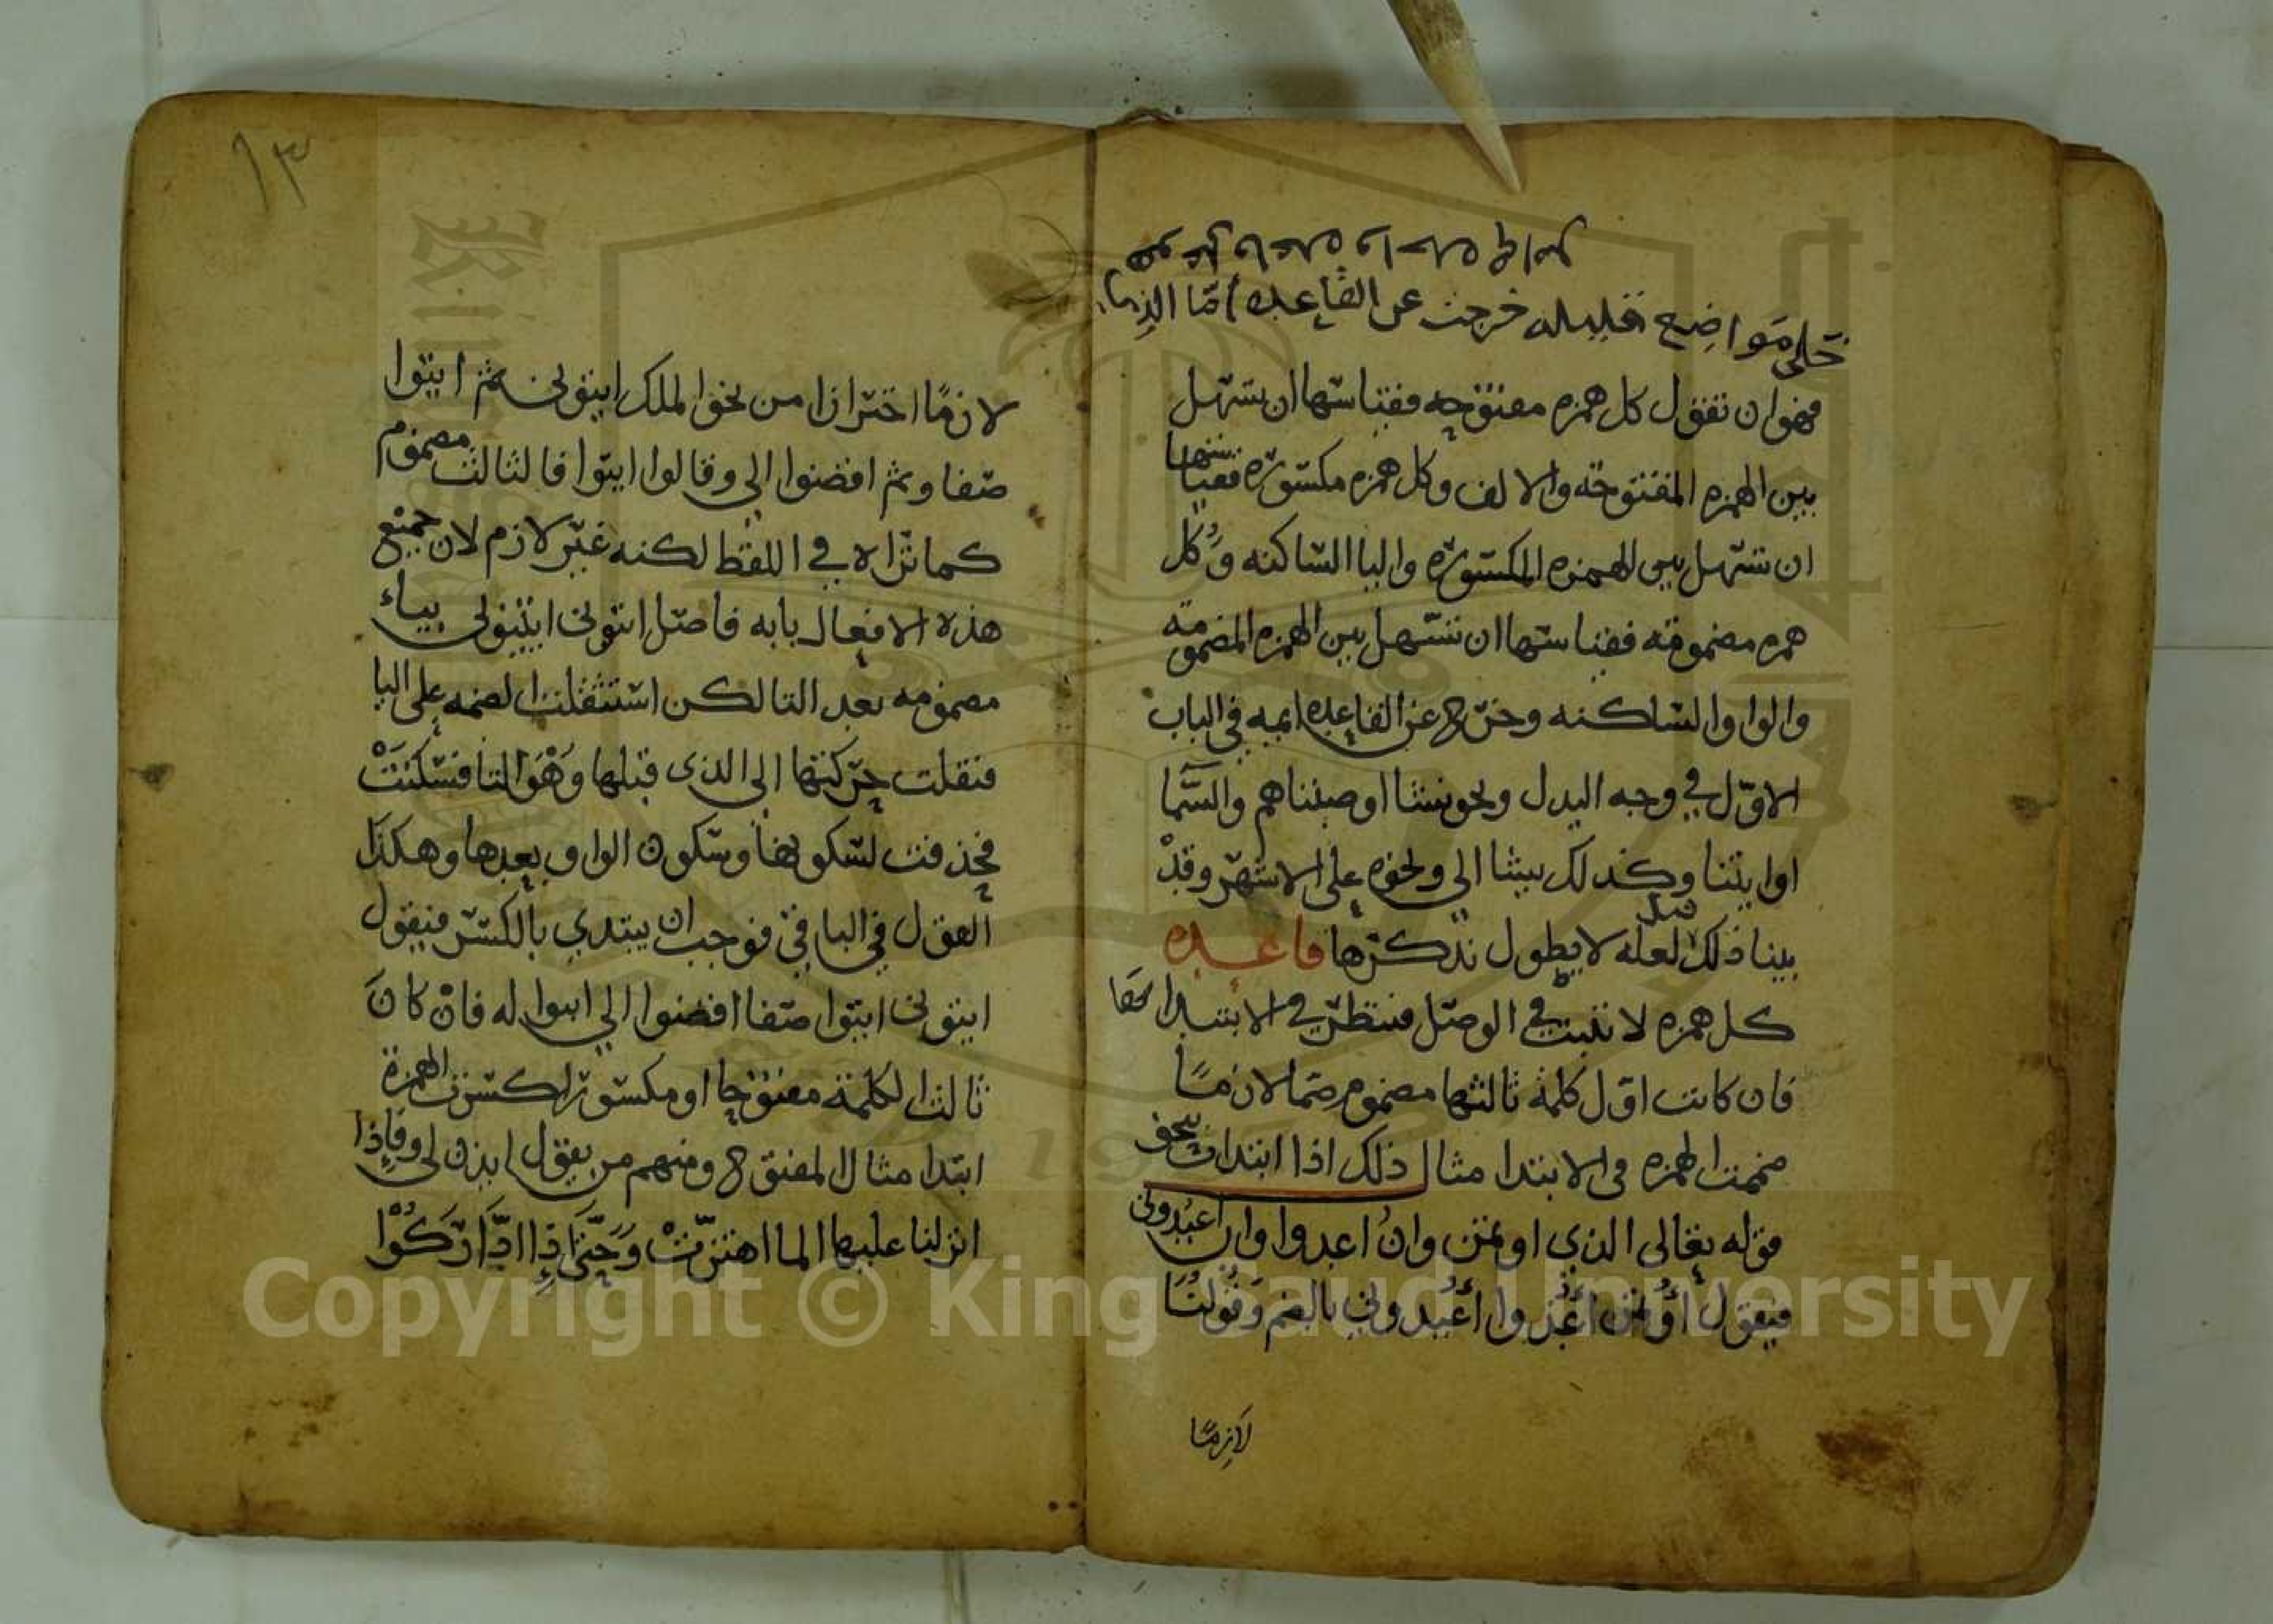 خلى مواضع قليله خرجت عن القاعده اما
فهو ان تقول كل همزه مفتوحه فقياسها ان تسهل
بين الهمزه المفتوحة والالف وكل همزه مكسورة فقياسها
ان تسهل بين الهمزه المكسورة واليا الساكنه وكل
همزه مضمومة فقياسها ان تسهل بين الهمزه المضمومة
والواو الساكنه وخرج عن القاعده ايمه في الباب
الاول في وجه البدل ونحو نشا اوصبناهم والسما
اوايتنا وكذلك يشا الى ونحوه على الاشهر وقد
بينا ذلك قبل لعله لا يطول تذكرها قاعده
كل همزه لا تثبت في الوصل فتنظر في الابتدا
فان كانت اول كلمة ثالثها مضموم ضما لازما
ضممت الهمزه فى الابتدا مثال ذلك اذا ابتدات بنحو
قوله تعالى الذي اوتمن وان اعبدوا وان اعبدونى
فيقول أؤتمن أعبدوا أعبدوني بالضم وقولنا
لازما
١٣
لازما احترازا من نحو الملك ايتوني ثم ايتوا
صفا وثم اقضوا الي وقالوا ايتوا فالثالث مضموم
كما تراه في اللفظ لكنه غير لازم لان جميع
هذه الافعال يايه فاصل ايتوني ايتيوني بياء
مضمومه بعد التا لكن استثقلت الضمه على اليا
فنقلت حركتها الى الذى قبلها وهو التا فسكنت
فحذفت لسكونها وسكون الواو بعدها وهكذا
القول في الباقي فوجب ان يبتدي بالكسر فيقول
ايتوني ايتوا صفا اقضوا الي ابنوا له فان كان
ثالث الكلمة مفتوحا او مكسورا كسرت الهمزة
ابتدا مثال المفتوح ومنهم من يقول ايذن لي وفاذا
انزلنا عليها الما اهتزت وحتى اذا ادّاركوا
Copyright © King Saud University